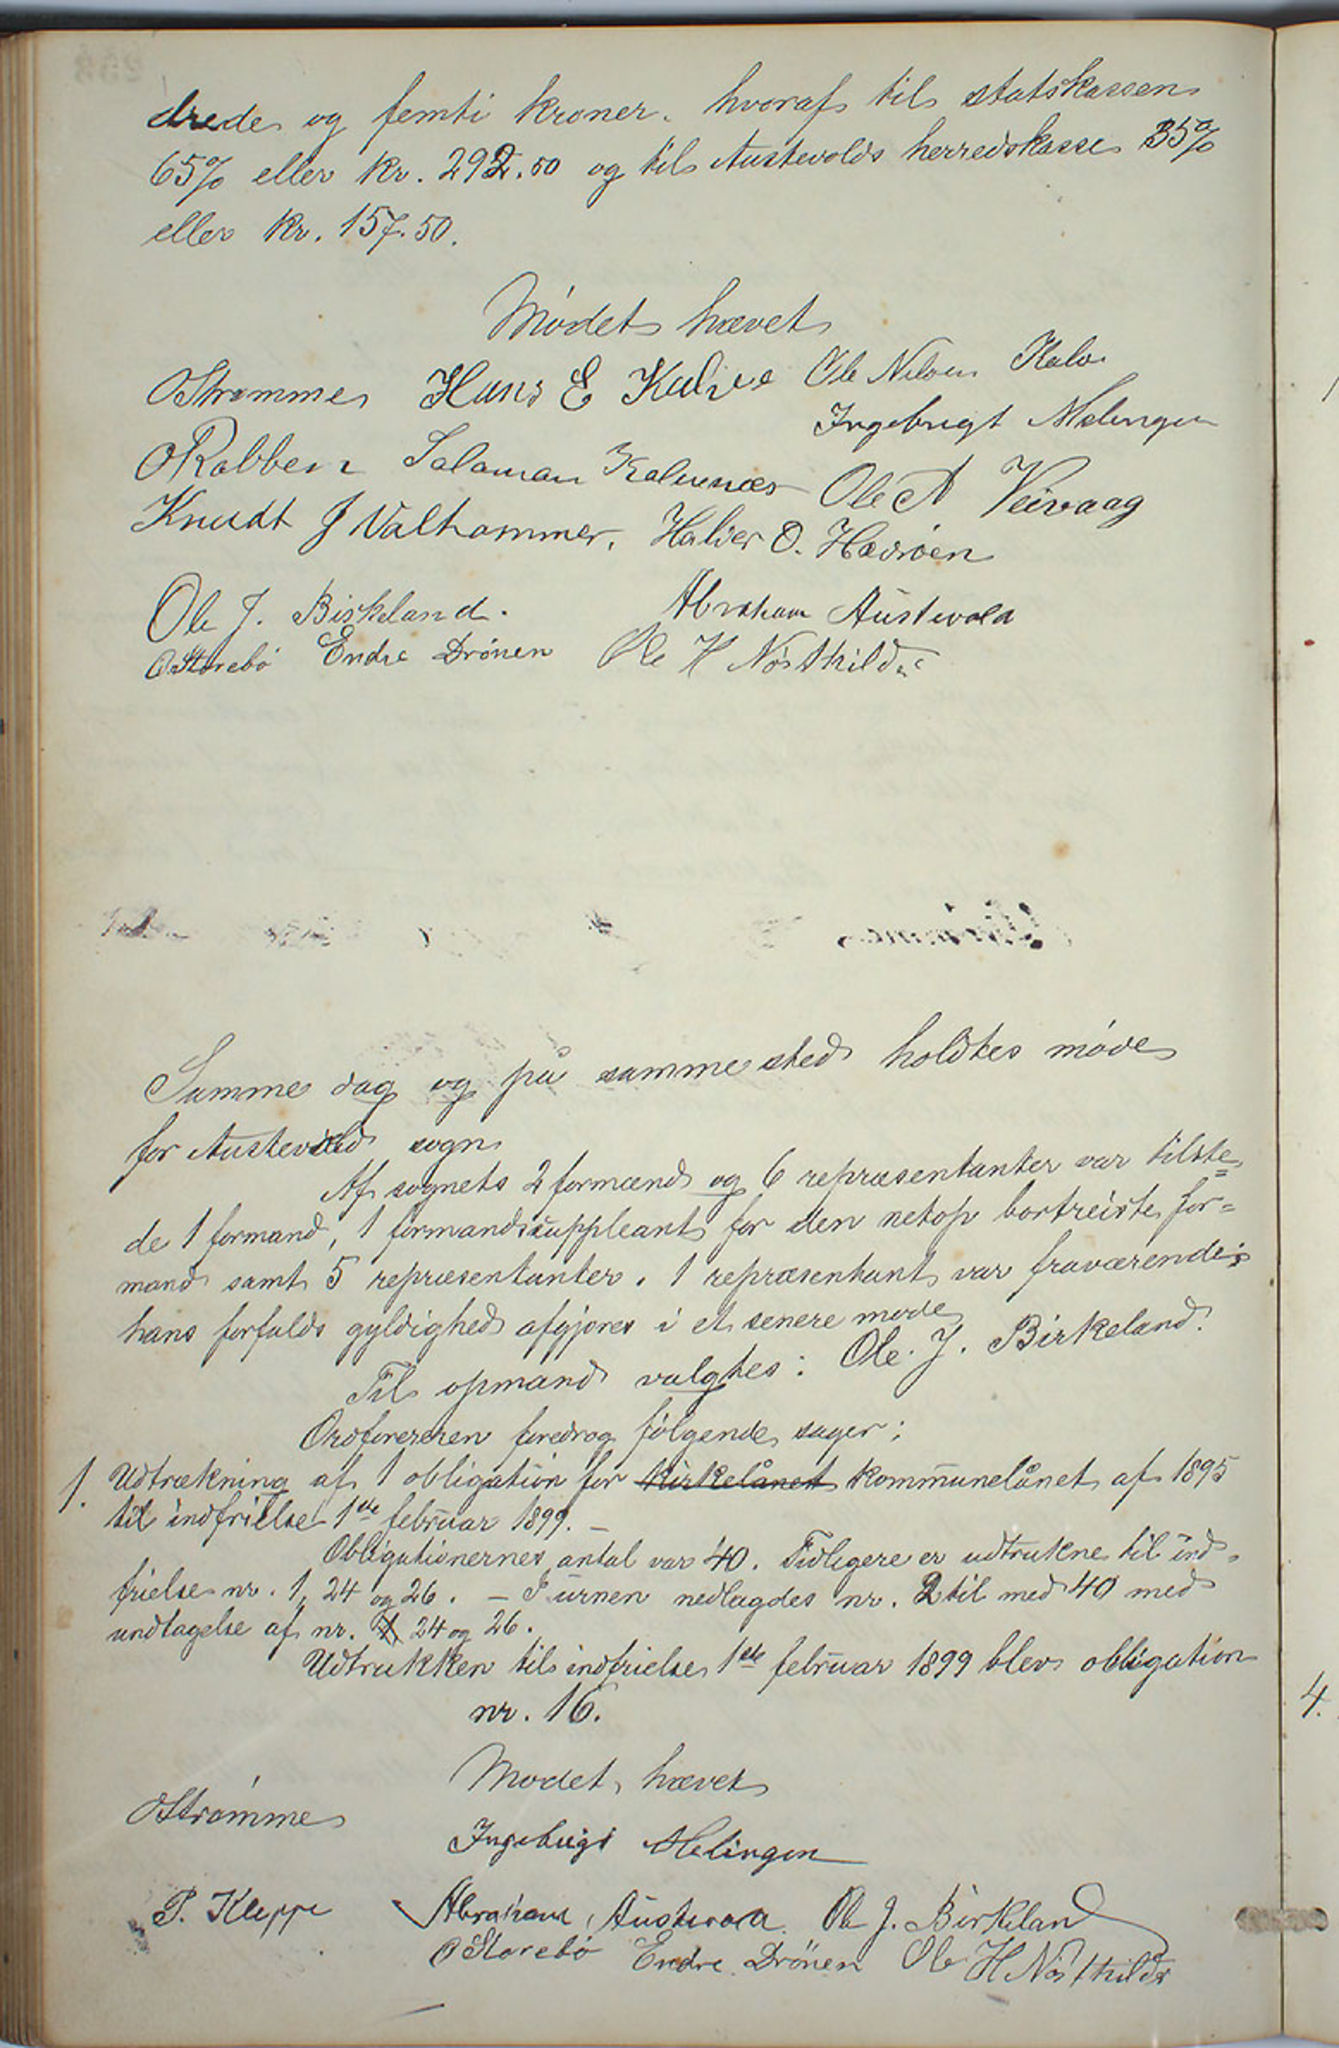 drede og femti kroner. hvoraf til statskassen
65% eller kr. 292.50 og til Austevolds herredskasse 35%
eller kr. 157.50.
Mödet hævet
OStrømme Hans E Kalve Ole Nilsen Kalve
Ingebrigt Melingen
ORabben Salamon Kalvenæs Ole A Veivaag
Knudt J Valhammer. Halver O. Hevröen
Ole J. Birkeland. Abraham Austevold
OStorebö Endre Drönen Ole H Nösthilde
Samme dag og på samme sted holdtes möde
for Austevold sogn
Af sognets 2 formænd og 6 repræsentanter var tilste=
de 1 formand, 1 formandssuppleant for den netop bortreiste for=
mand samt 5 repræsentanter. 1 repræsentant var fraværende;
hans forfalds gyldighed afgjöres i et senere möde
Til opmand valgtes: Ole. J. Birkeland.
Ordföreren foredrog fölgende sager:
1. Udtrækning af 1 obligation for kirkelånet kommunelånet af 1895
til indfrielse 1ste februar 1899. —
Obligationernes antal var 40. Tidligere er udtrukne til ind-
frielse nr. 1, 24 og 26. — I urnen nedlagdes nr. 2 til med 40 med
undtagelse af nr. 24 og 26.
Udtrukken til indfrielse 1ste februar 1899 blev obligation
nr. 16.
Mödet hævet
OStrömme
Ingebrigt Melingen
P. Kleppe Abraham Austevold Ole J. Birkeland
OStorebö Endre Drönen Ole H Nösthilde
4.